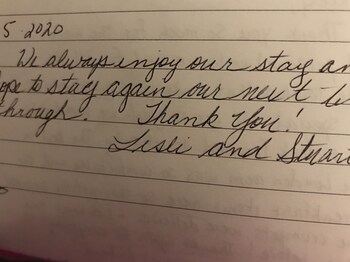 5 2020
We always enjoy our stay an
ope to stay again our next ti
through. Thank You!
Lesli and Stuar